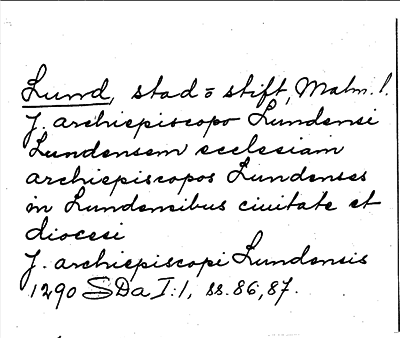 Lund, stad o stift, Malm. l.
J. archiepiscopo Lundensi
Lundensem ecclesiam
archiepiscopos Lundenses
in Lundensibus ciuitate et
diocesi
J. archiepiscopi Lundensis
1290 SDa I:1, ss. 86, 87.